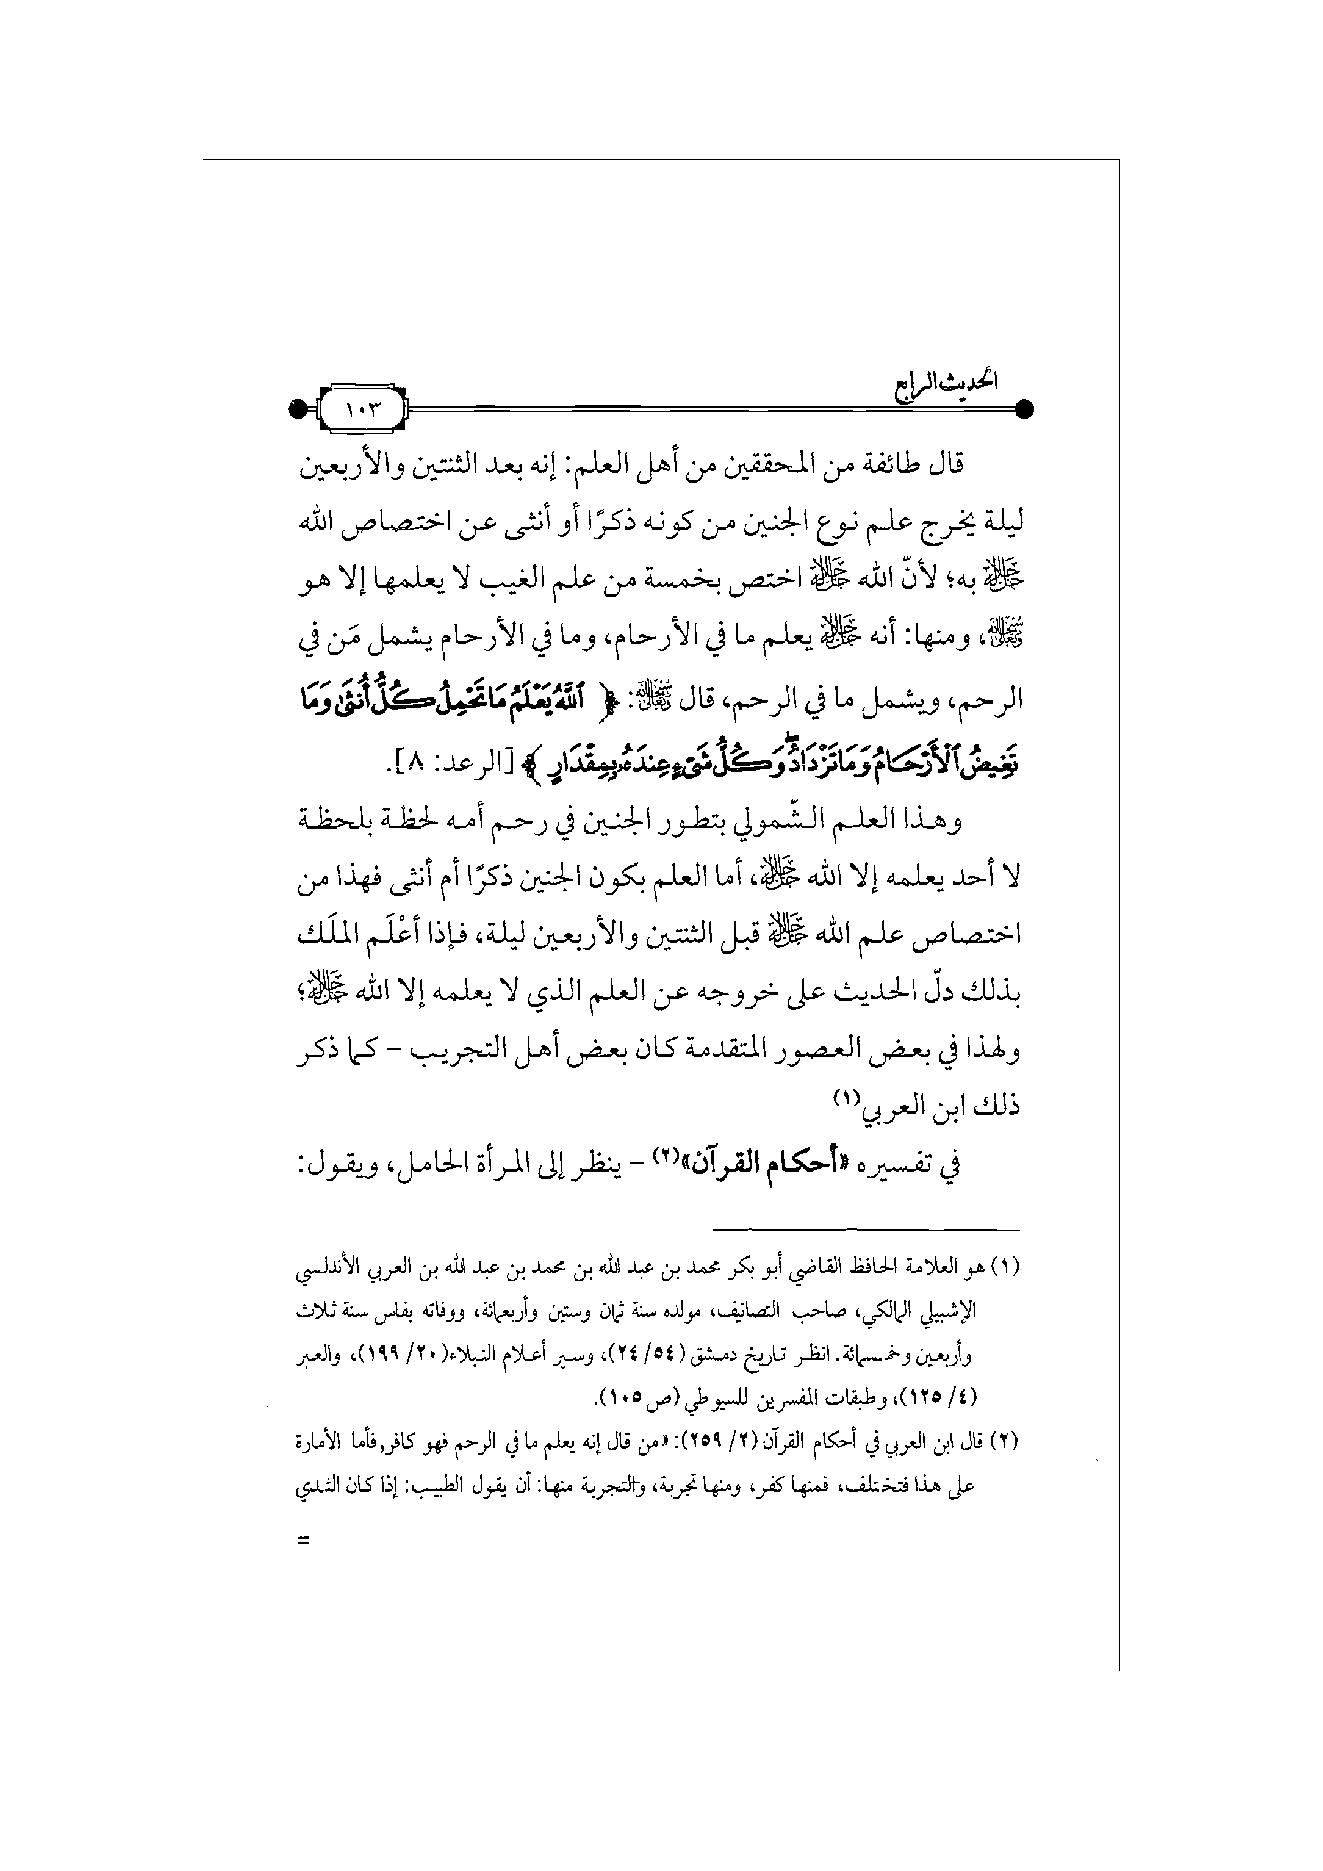 الحديث الرابع
١٠٣
قال طائفة من المحققين من أهل العلم: إنه بعد الثنتين والأربعين
ليلة يخرج علم نوع الجنين من كونه ذكرًا أو أنثى عن اختصاص الله
ﷻ به؛ لأنّ الله ﷻ اختص بخمسة من علم الغيب لا يعلمها إلا هو
، ومنها: أنه ﷻ يعلم ما في الأرحام، وما في الأرحام يشمل مَن في
الرحم، ويشمل ما في الرحم، قال : ﴿ ٱللَّهُ يَعْلَمُ مَا تَحْمِلُ كُلُّ أُنثَىٰ وَمَا
تَغِيضُ ٱلْأَرْحَامُ وَمَا تَزْدَادُ ۖ وَكُلُّ شَىْءٍ عِندَهُۥ بِمِقْدَارٍ ﴾ [الرعد: ٨].
وهذا العلم الشّمولي بتطور الجنين في رحم أمه لحظة بلحظة
لا أحد يعلمه إلا الله ﷻ، أما العلم بكون الجنين ذكرًا أم أنثى فهذا من
اختصاص علم الله ﷻ قبل الثنتين والأربعين ليلة، فإذا أعْلَم الملَك
بذلك دلّ الحديث على خروجه عن العلم الذي لا يعلمه إلا الله ﷻ؛
ولهذا في بعض العصور المتقدمة كان بعض أهل التجريب – كما ذكر
ذلك ابن العربي(١)
في تفسيره «أحكام القرآن»(٢) – ينظر إلى المرأة الحامل، ويقول:
(١) هو العلامة الحافظ القاضي أبو بكر محمد بن عبد الله بن محمد بن عبد الله بن العربي الأندلسي
الإشبيلي المالكي، صاحب التصانيف، مولده سنة ثمان وستين وأربعمائة، ووفاته بفاس سنة ثلاث
وأربعين وخمسمائة. انظر تاريخ دمشق (٥٤/ ٢٤)، وسير أعلام النبلاء(٢٠/ ١٩٩)، والعبر
(٤/ ١٢٥)، وطبقات المفسرين للسيوطي (ص ١٠٥).
(٢) قال ابن العربي في أحكام القرآن (٢/ ٢٥٩): «من قال إنه يعلم ما في الرحم فهو كافر, فأما الأمارة
على هذا فتختلف، فمنها كفر، ومنها تجربة، والتجربة منها: أن يقول الطبيب: إذا كان الثدي
=